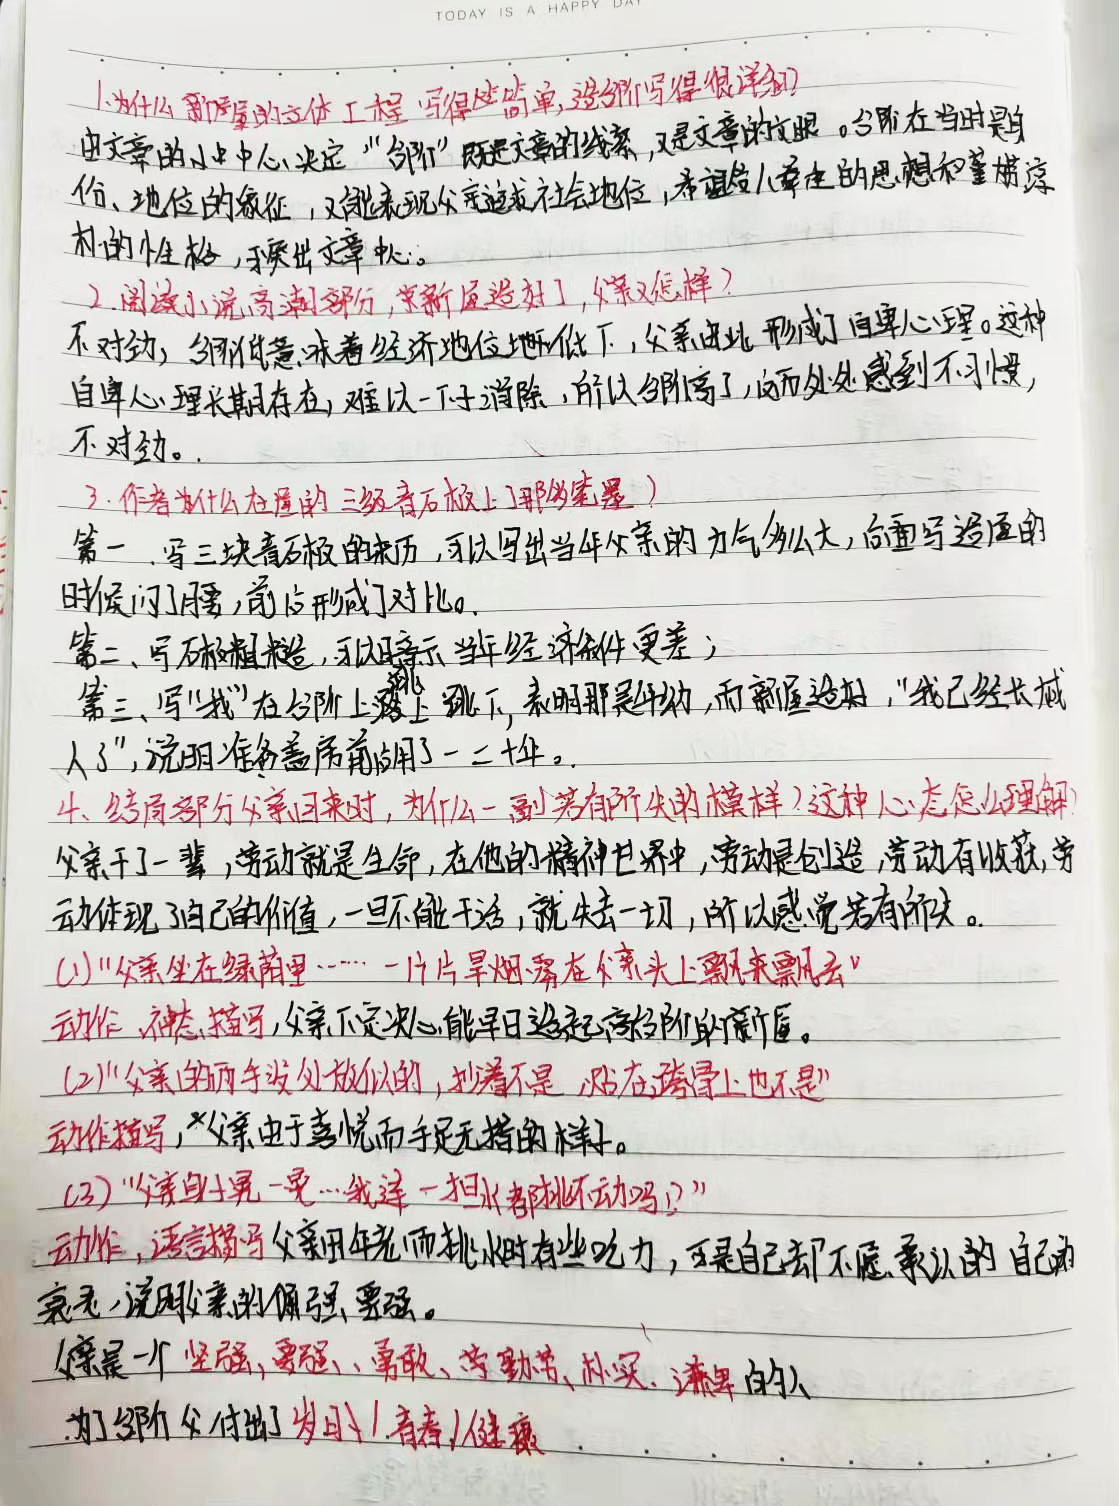 TODAY IS A HAPPY DAY
1.为什么新屋的主体工程写得些简单,造台阶写得很详细?
由文章的小中中心决定"台阶"既是文章的线索,又是文章的文眼。台阶在当时是身
份、地位的象征,又能表现父亲追求社会地位,希望受人尊重的思想和谦卑淳
朴的性格,突出文章中心。
2.阅读小说高潮部分,当新屋造好了,父亲又怎样?
不对劲,台阶低意味着经济地位地低下,父亲由此形成了自卑心理。这种
自卑心理长期存在,难以一下子消除,所以台阶高了,反而处处感到不习惯,
不对劲。
3.作者为什么在屋的三级青石板上了那多笔墨)
第一、写三块青石板的来历,可以写出当年父亲的力气多么大,后面写造屋的
时候闪了腰,前后形成了对比。
第二、写石板粗糙,可以暗示当年经济条件更差;
第三、写"我"在台阶上跳上跳下,表明那是年幼,而新屋造好,"我已经长成
人了",说明准备盖房前后用了一二十年。
4、结局部分父亲回来时,为什么一副若有所失的模样?这种心态怎么理解?
父亲干了一辈,劳动就是生命,在他的精神世界中,劳动是创造,劳动有收获,劳
动体现了自己的价值,一旦不能干活,就失去一切,所以感觉若有所失。
(1)"父亲坐在绿荫里……一片片旱烟雾在父亲头上飘来飘去"
动作、神态描写,父亲下定决心能早日造起高台阶的新屋。
(2)"父亲的两手没处放似的,抄着不是,贴在胯骨上也不是"
动作描写,父亲由于喜悦而手足无措的样子。
(3)"父亲身子晃一晃…我连一担水都挑不动吗!?"
动作,语言描写父亲因年老而挑水时有些吃力,可是自己却不愿承认的自己的
衰老,说明父亲的倔强、要强。
父亲是一个坚强、要强、、勇敢、劳勤苦、朴实、谦卑的人
为了台阶父付出了岁月\青春/健康